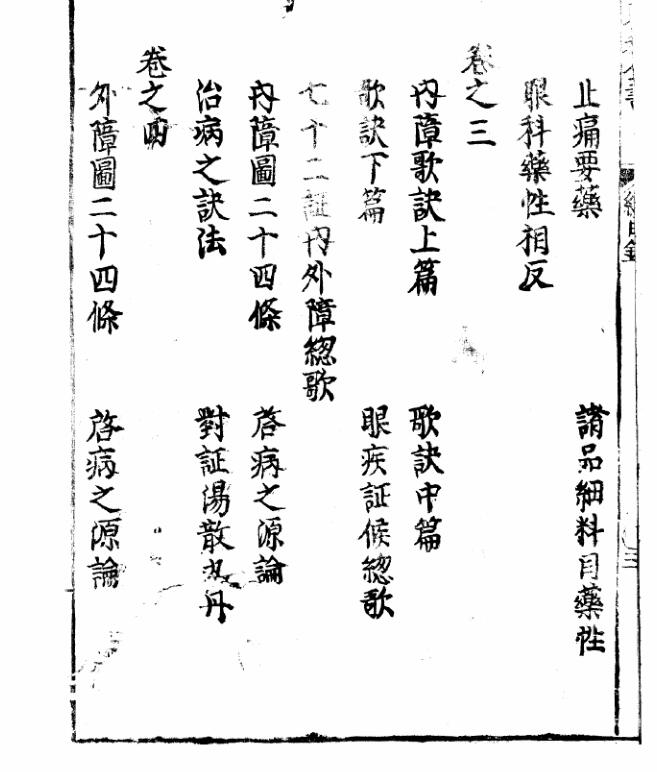 止痛要藥　諸品細料目藥性
眼科藥性相反
卷之三
內障歌訣上篇　歌訣中篇
歌訣下篇　眼疾証候總歌
七十二証內外障總歌
內障圖二十四條　啓病之源論
治病之訣法　對証湯散丸丹
卷之四
外障圖二十四條　啓病之源論